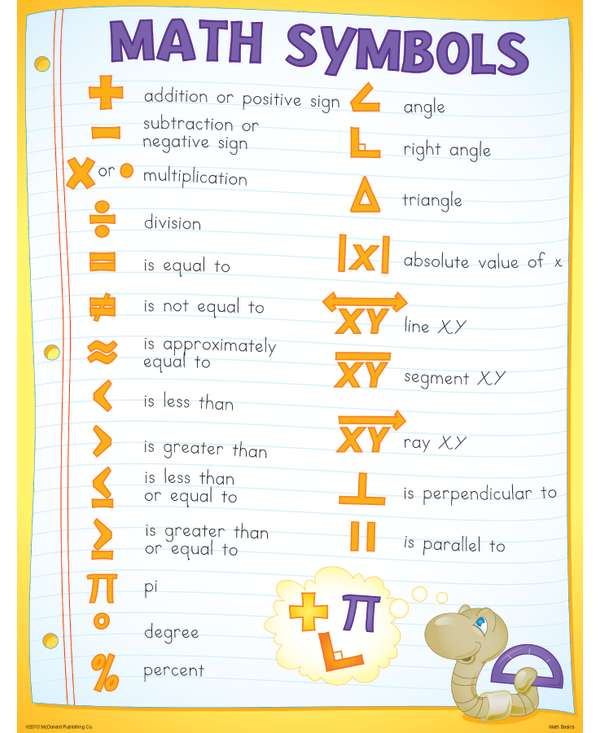 MATH SYMBOLS
+ addition or positive sign
− subtraction or
negative sign
× or • multiplication
÷ division
= is equal to
≠ is not equal to
≈ is approximately
equal to
< is less than
> is greater than
≤ is less than
or equal to
≥ is greater than
or equal to
π pi
° degree
% percent
∠ angle
∟ right angle
△ triangle
|x| absolute value of x
XY line X,Y
XY segment X,Y
XY ray X,Y
⊥ is perpendicular to
|| is parallel to
+ π
∟
©2010 McDonald Publishing Co.
Math Basics